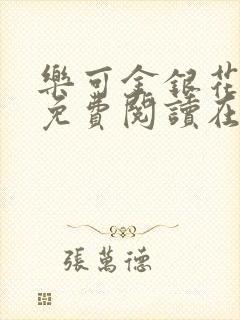 樂可金銀花
免費閱讀在
張萬德